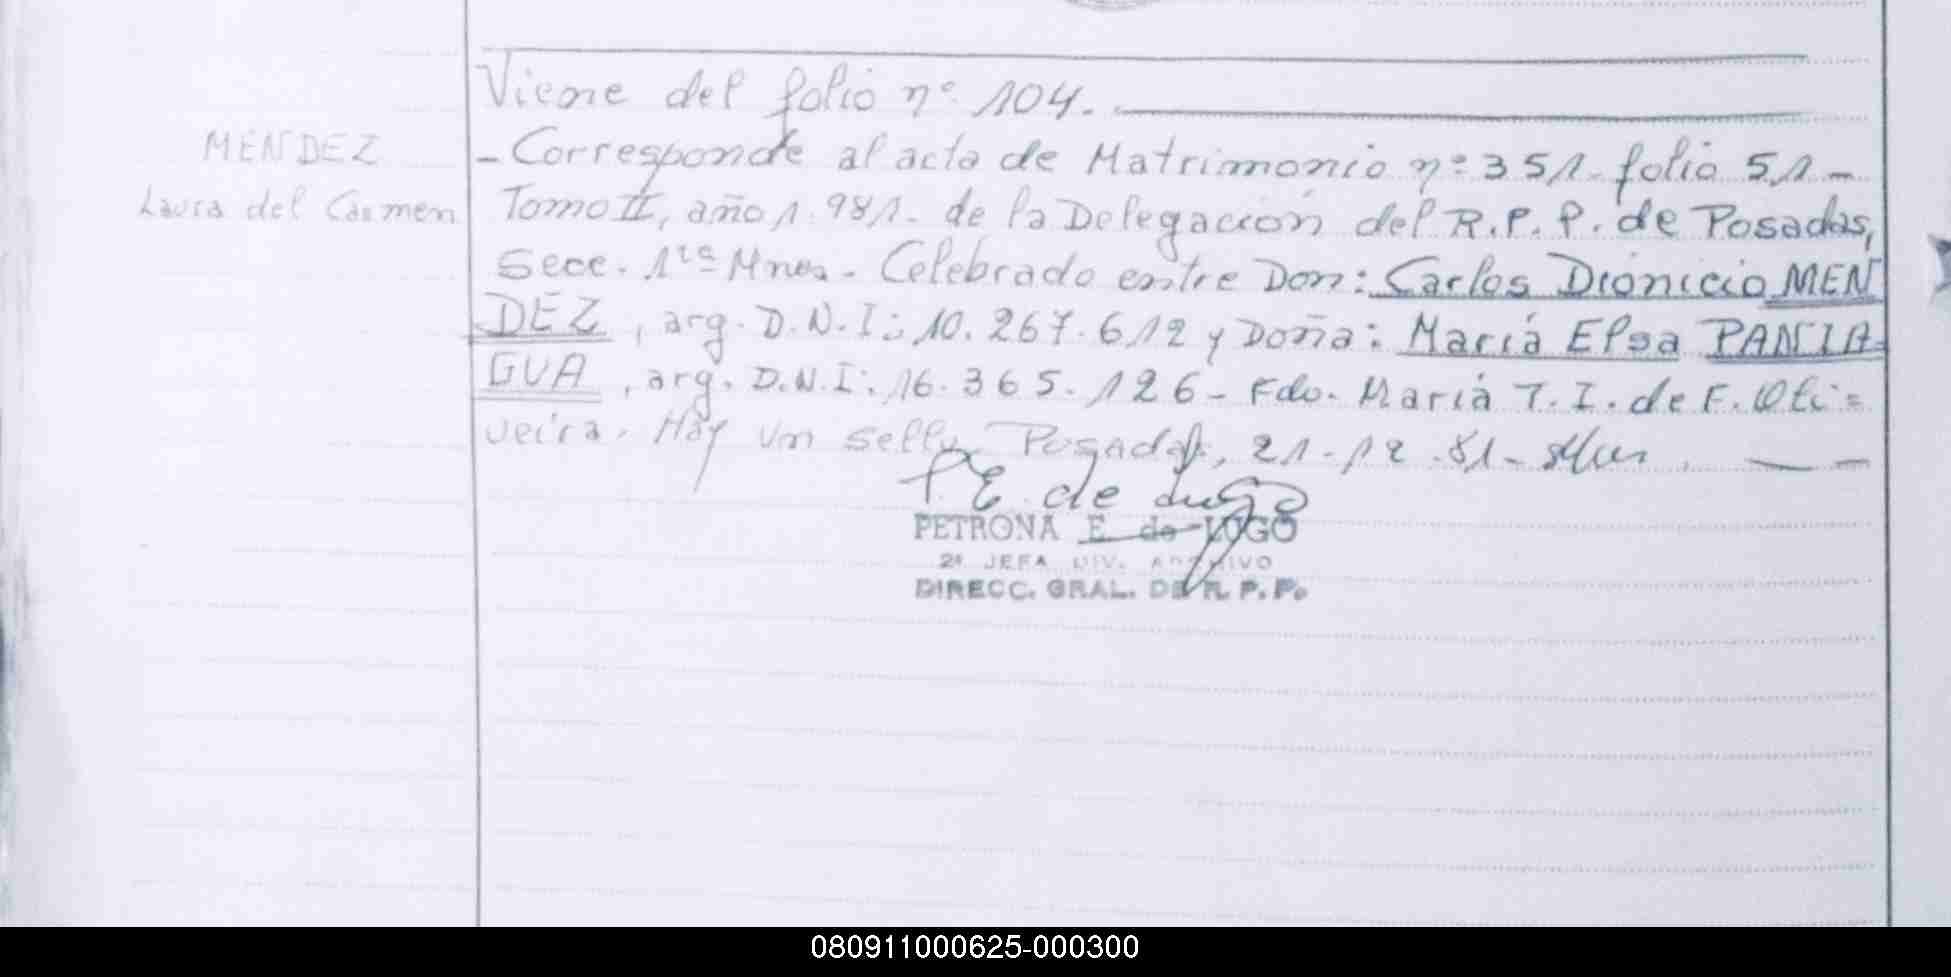 Viene del folio nº 104.
MENDEZ
Laura del Carmen
- Corresponde al acta de Matrimonio nº 351- folio 51-
Tomo II, año 1.981- de la Delegación del R.P.P. de Posadas,
Secc. 1ra Mnes. Celebrado entre Don: Carlos Dionicio MEN
DEZ, arg. D.N.I: 10.267.612 y Doña: María Elsa PANIA
GUA, arg. D.N.I: 16.365.126- Fdo. María T. I. de F. Oli=
veira. Hay un sello. Posadas, 21-12-81-
P E de Lugo
PETRONA E. de LUGO
2ª JEFA DIV. ARCHIVO
DIRECC. GRAL. DE R. P. P.
080911000625-000300